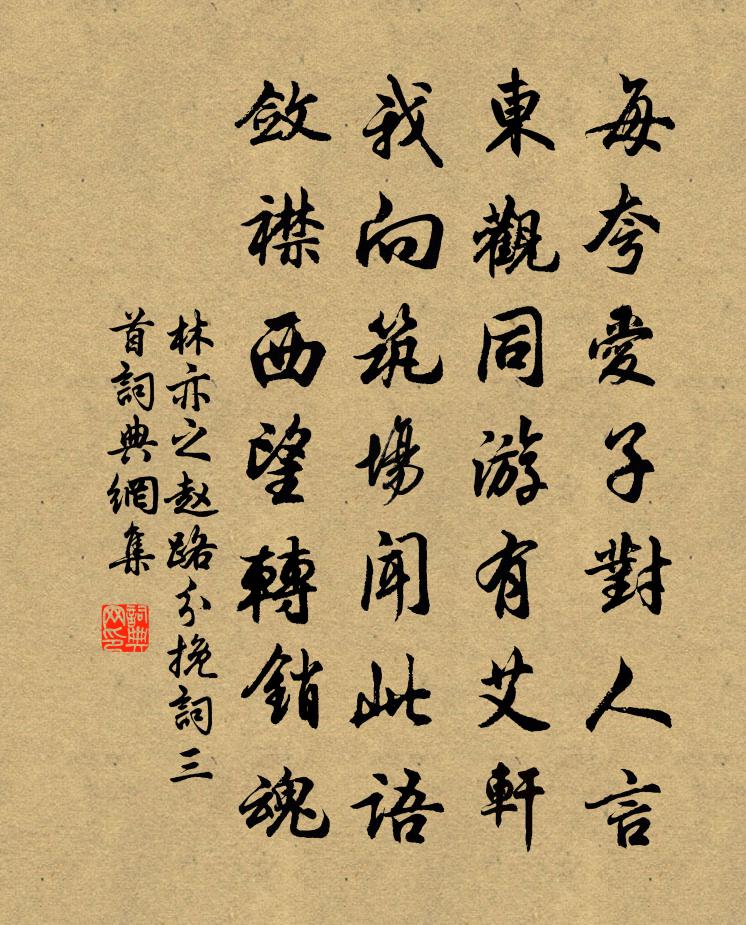 每夸愛子對人言
東觀同游有艾軒
我向筑場聞此語
斂襟西望轉銷魂
林亦之趙路分挽詞三
首詞典網集
詞典
网印